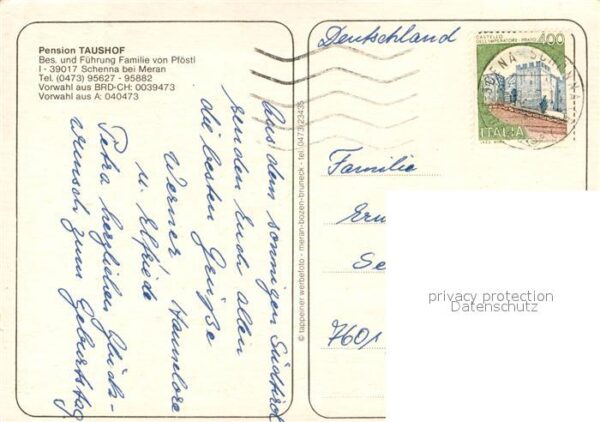 Pension TAUSHOF
Bes. und Führung Familie von Pföstl
I - 39017 Schenna bei Meran
Tel. (0473) 95627 - 95882
Vorwahl aus BRD-CH: 0039473
Vorwahl aus A: 040473
Aus dem sonnigen Südtirol
senden Euch allen
die besten Grüße
Werner, Hannelore
u. Elfriede
Petra herzlichen Glück-
wunsch zum Geburtstag
© tappeiner werbefoto - meran-bozen-bruneck - tel. 0473/23435
Deutschland
CASTELLO
DELL'IMPERATORE - PRATO
400
ITALIA
Familie
Ern
Se
7601
privacy protection
Datenschutz